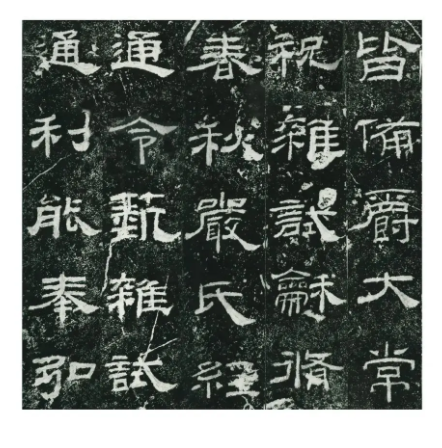 皆備爵大常
祝雜試龢脩
春秋嚴氏經
通令藝雜試
通利能奉弘